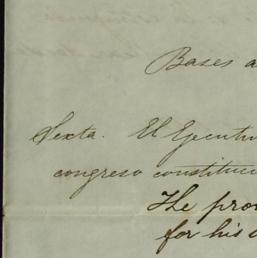 Bases a
Sexta. El Ejecutiv
congreso constituci
The prov
for his a